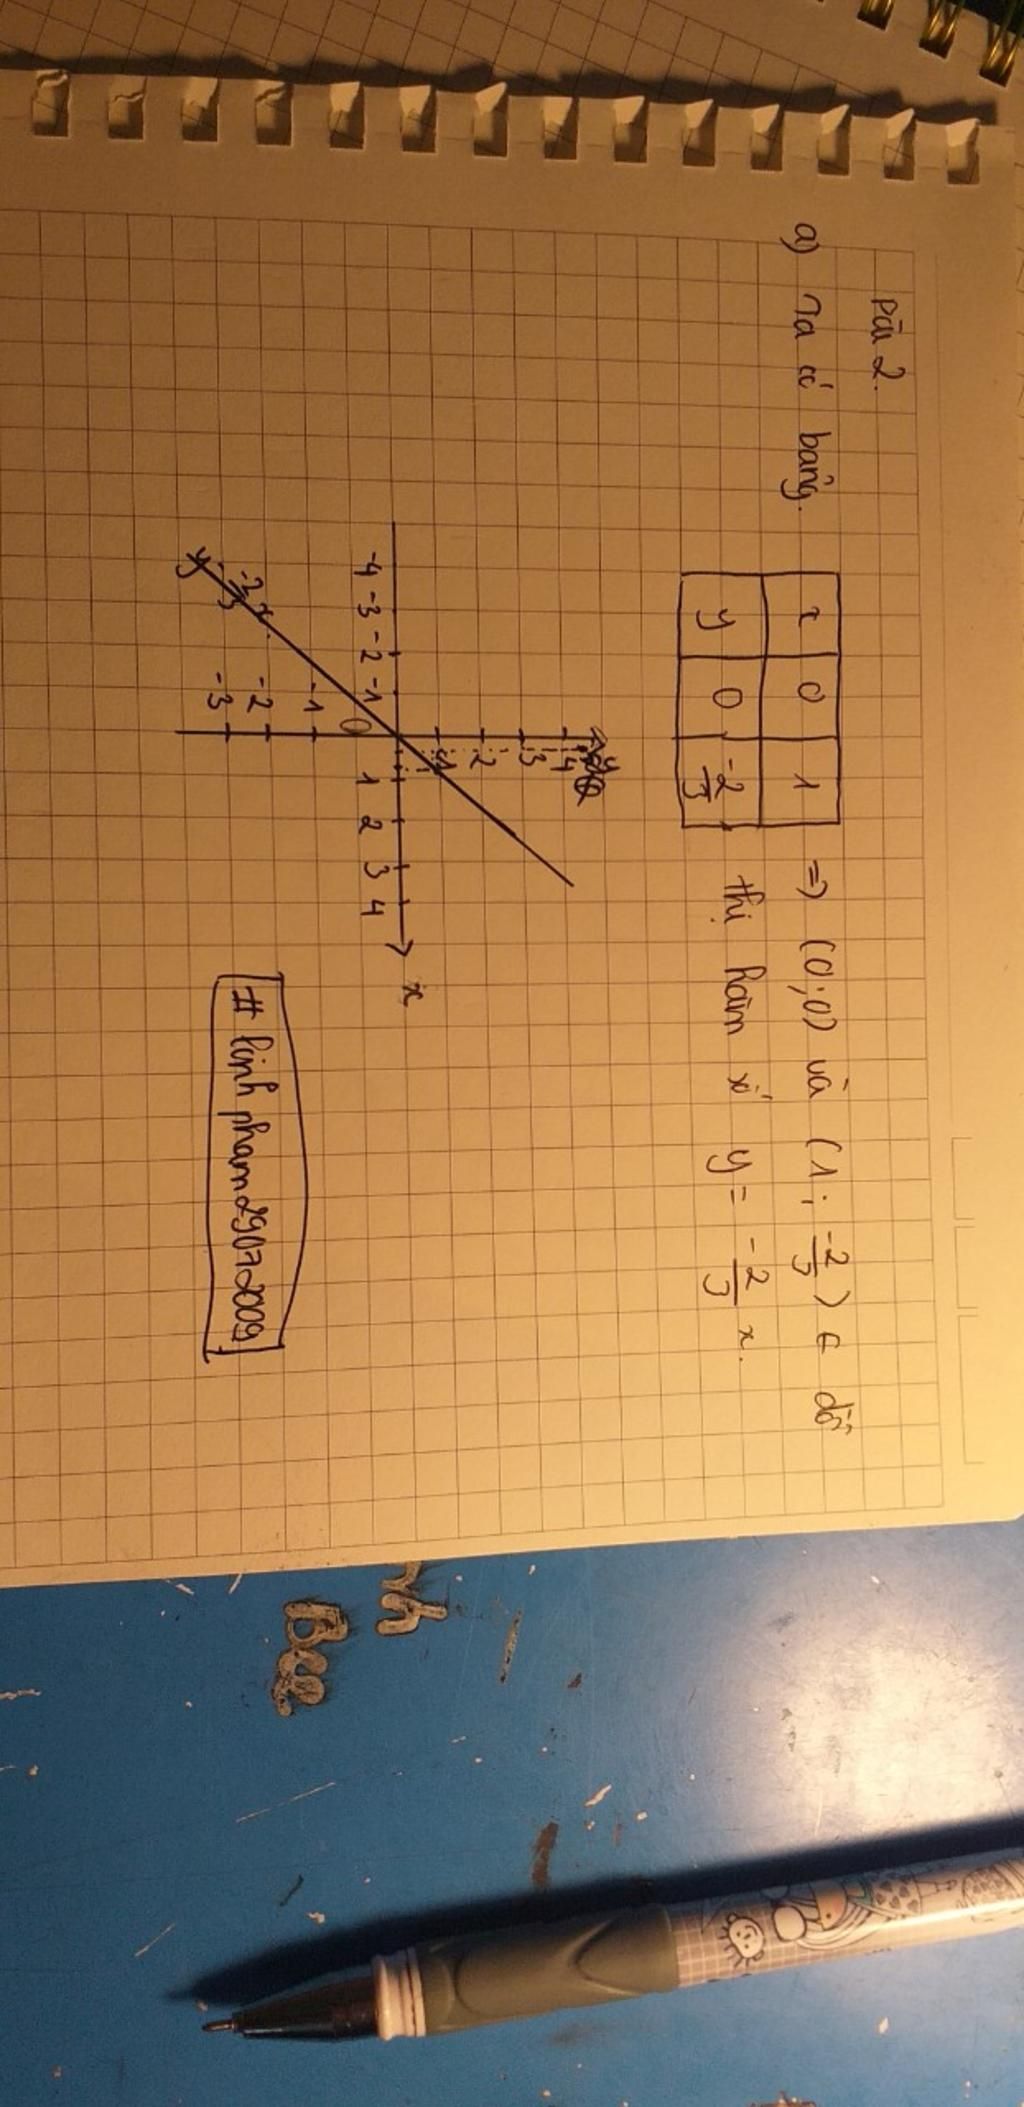 Bài 2.
a) Ta có bảng.
x 0 1
y 0 -2/3
=> (0;0) và (1; -2/3) ∈ đồ
thị hàm số y = -2/3 x.
y
4
3
2
1
-4 -3 -2 -1 0 1 2 3 4 x
-1
-2
-3
y = -2/3 x
# linhpham29072009
nh
Bee